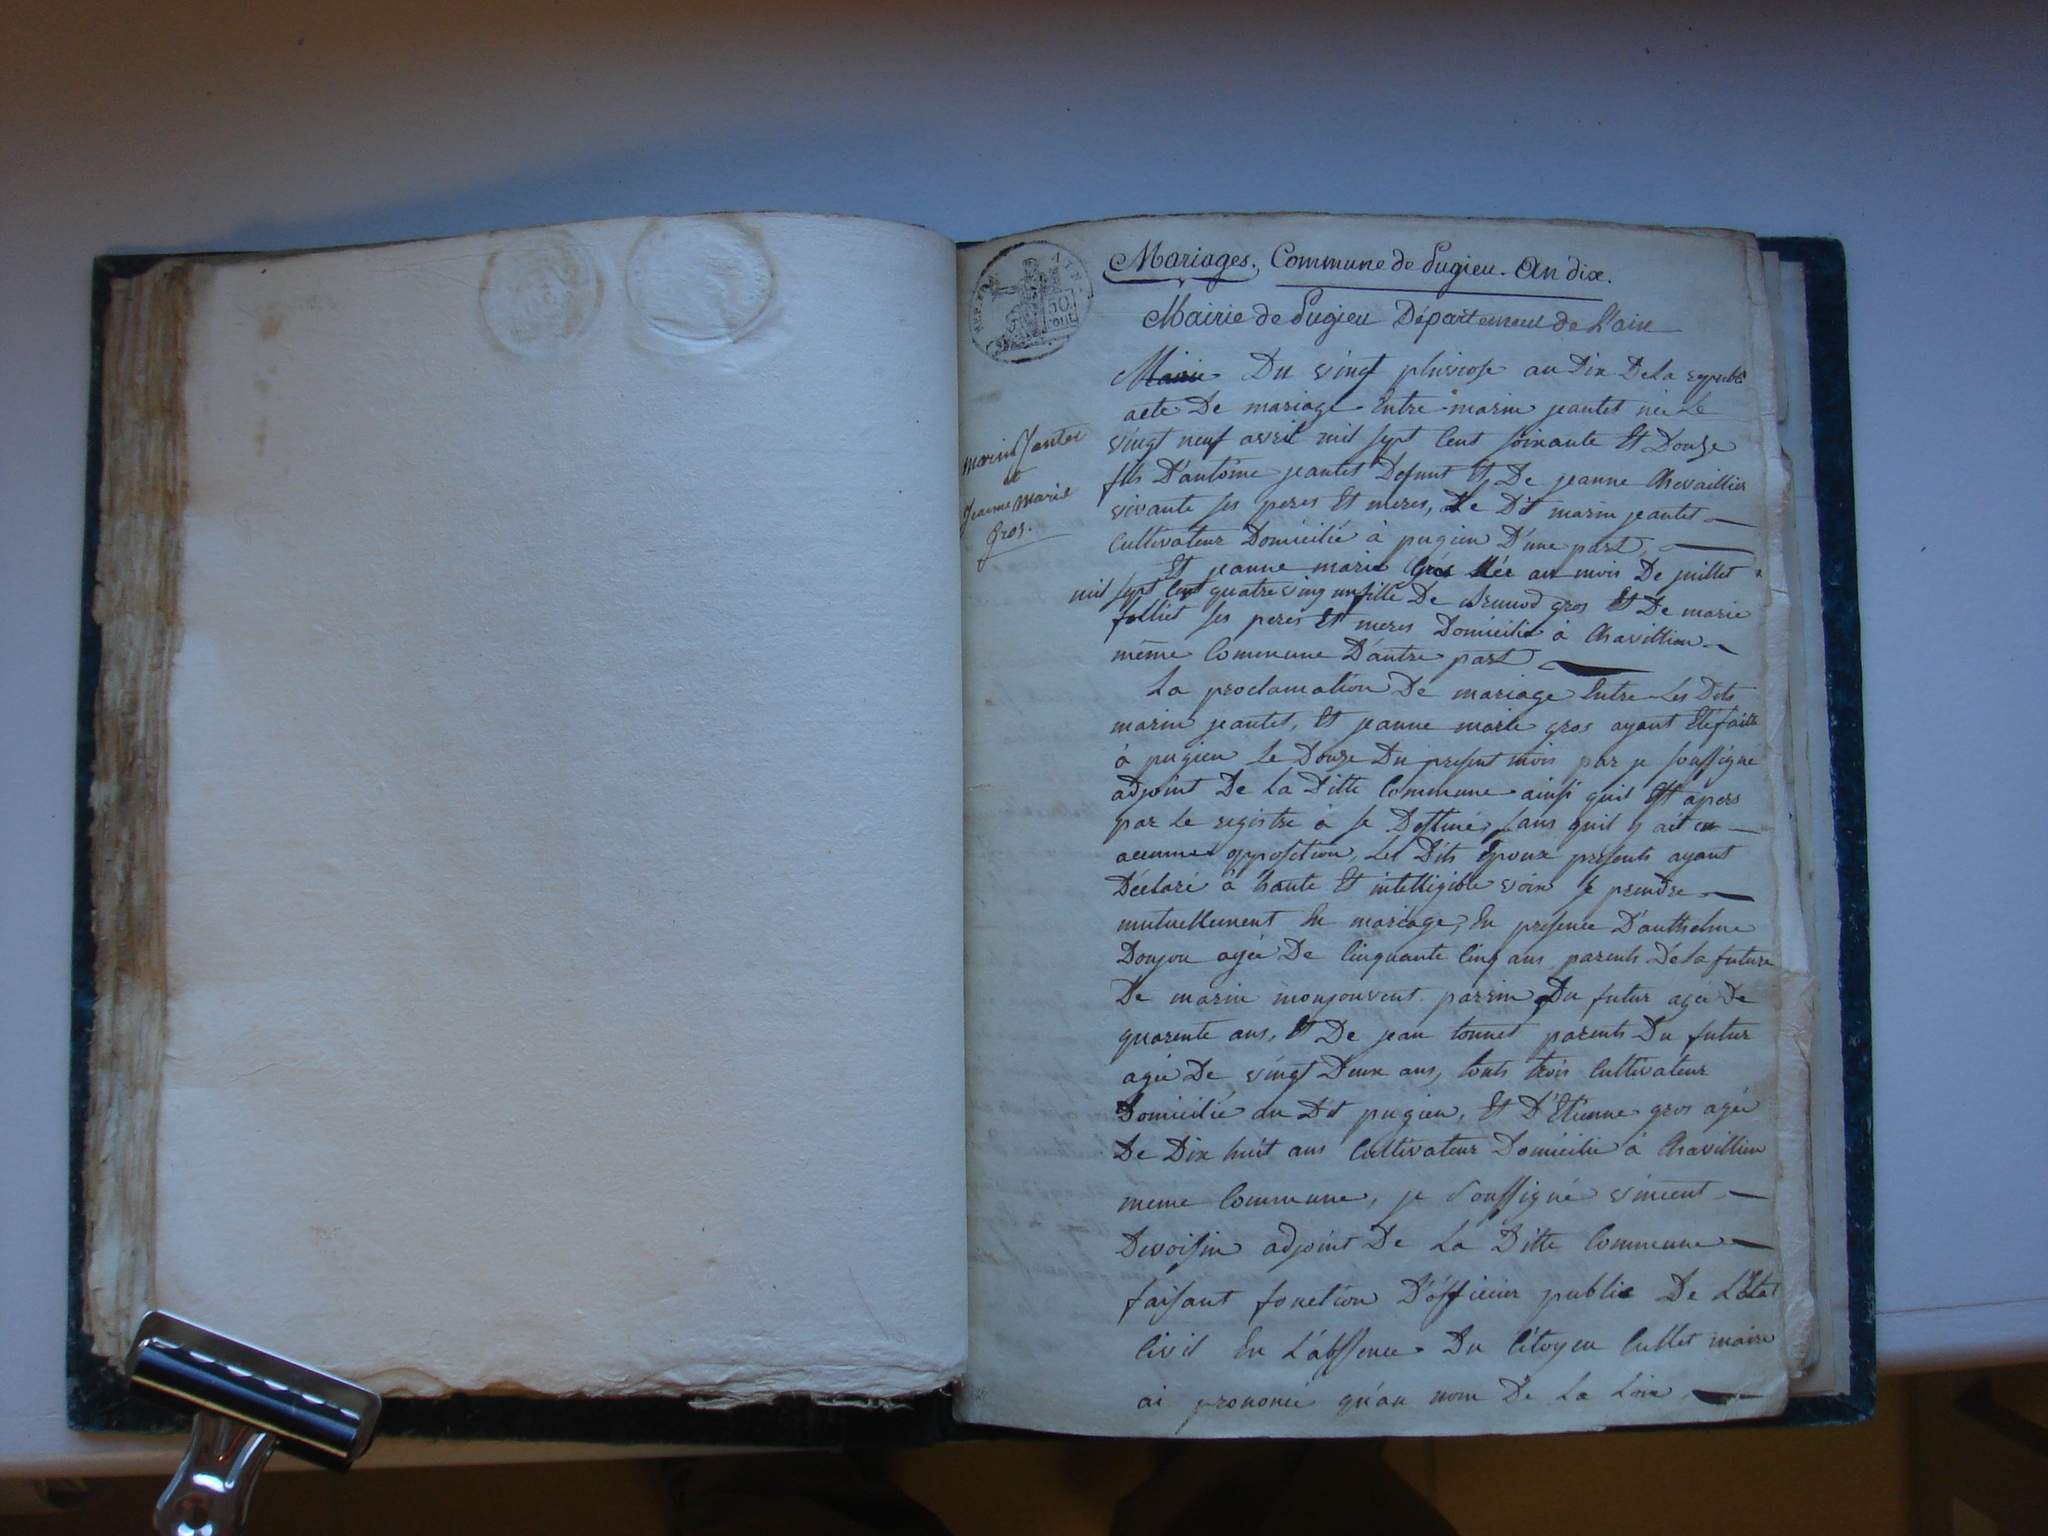 Mariages. Commune de Pugieu. An dix.
Mairie de Pugieu Département de L'ain
REP. FRA. AIN.
50 cent
Marin Jantet
et
Jeanne Marie
Gros.
Mairie Du vingt pluviose an Dix De La republi
acte De mariage Entre marin jeantet née Le
vingt neuf avril mil sept Cent soixante Et Douze
fils D'antoine jeantet Defunt Et De jeanne Chevaillier
vivante ses peres Et meres, Le Dit marin jeantet
Cultivateur Domicilié à pugieu D'une part,
Et jeanne marie Gros Née au mois De juillet
mil sept Cent quatre ving un fille De Brunod gros Et De marie
folliet ses peres Et meres Domicilié à Chavillieu
même Commune D'autre part
La proclamation De mariage Entre Les Dits
marin jeantet, Et jeanne marie gros ayant Eté faitte
à pugieu Le Douze Du present mois par je soussigné
adjoint De La Ditte Commune ainsi quil Est apers
par Le registre à se Destiné, sans quil y ait eu
aucune opposition, Les Dits Epoux présents ayant
Déclaré à haute Et intelligible voix se prendre
mutuellement En mariage, En presence D'anthelme
Doujou agée De Cinquante Cinq ans parents De la future
De marin monjouvent parrin Du futur agée De
quarente ans, Et De jean tonnet parents Du futur
agée De vingt Deux ans, touts trois Cultivateur
Domicilié au Dit pugieu, Et D'Etienne gros agée
De Dix huit ans Cultivateur Domicilié à Chavillieu
meme Commune, je soussigné vincent
Devoisin adjoint De La Ditte Commune
faisant fonction D'officier public De L'Etat
Civil En L'abssence Du Citoyen Cullet maire
ai prononcé qu'au nom De La Loix